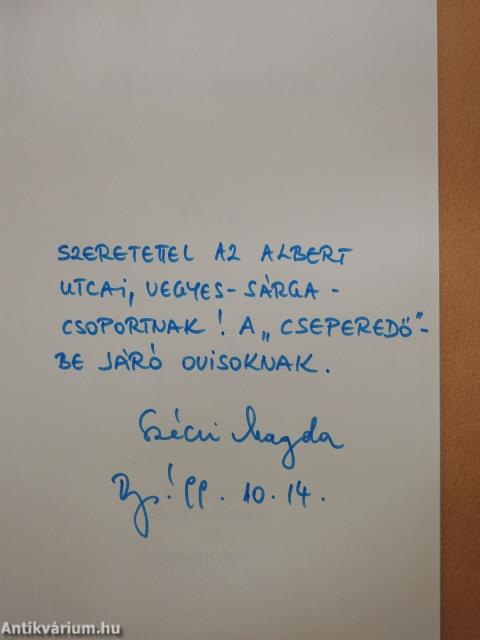 SZERETETTEL AZ ALBERT
UTCAi, VEGYES-SÁRGA-
CSOPORTNAK! A „CSEPEREDŐ"-
BE JÁRÓ OVISOKNAK.
Szécsi Magda
Bp.! 99. 10. 14.
Antikvárium.hu